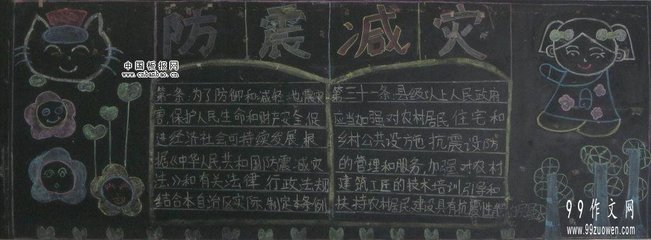 防震减灾
中国板报网
www.cnbanbao.cn
第一条:为了防御和减轻地震灾
害保护人民生命和财产安全促
进经济社会可持续发展根
据《中华人民共和国防震减灾
法》和有关法律行政法规
结合本自治区实际,制定本条例
第三十一条县级以上人民政府
应当加强对农村居民住宅和
乡村公共设施抗震设防
的管理和服务,加强对农村
建筑工匠的技术培训引导和
扶持农村居民建设具有抗震性
99作文网
www.99zuowen.com